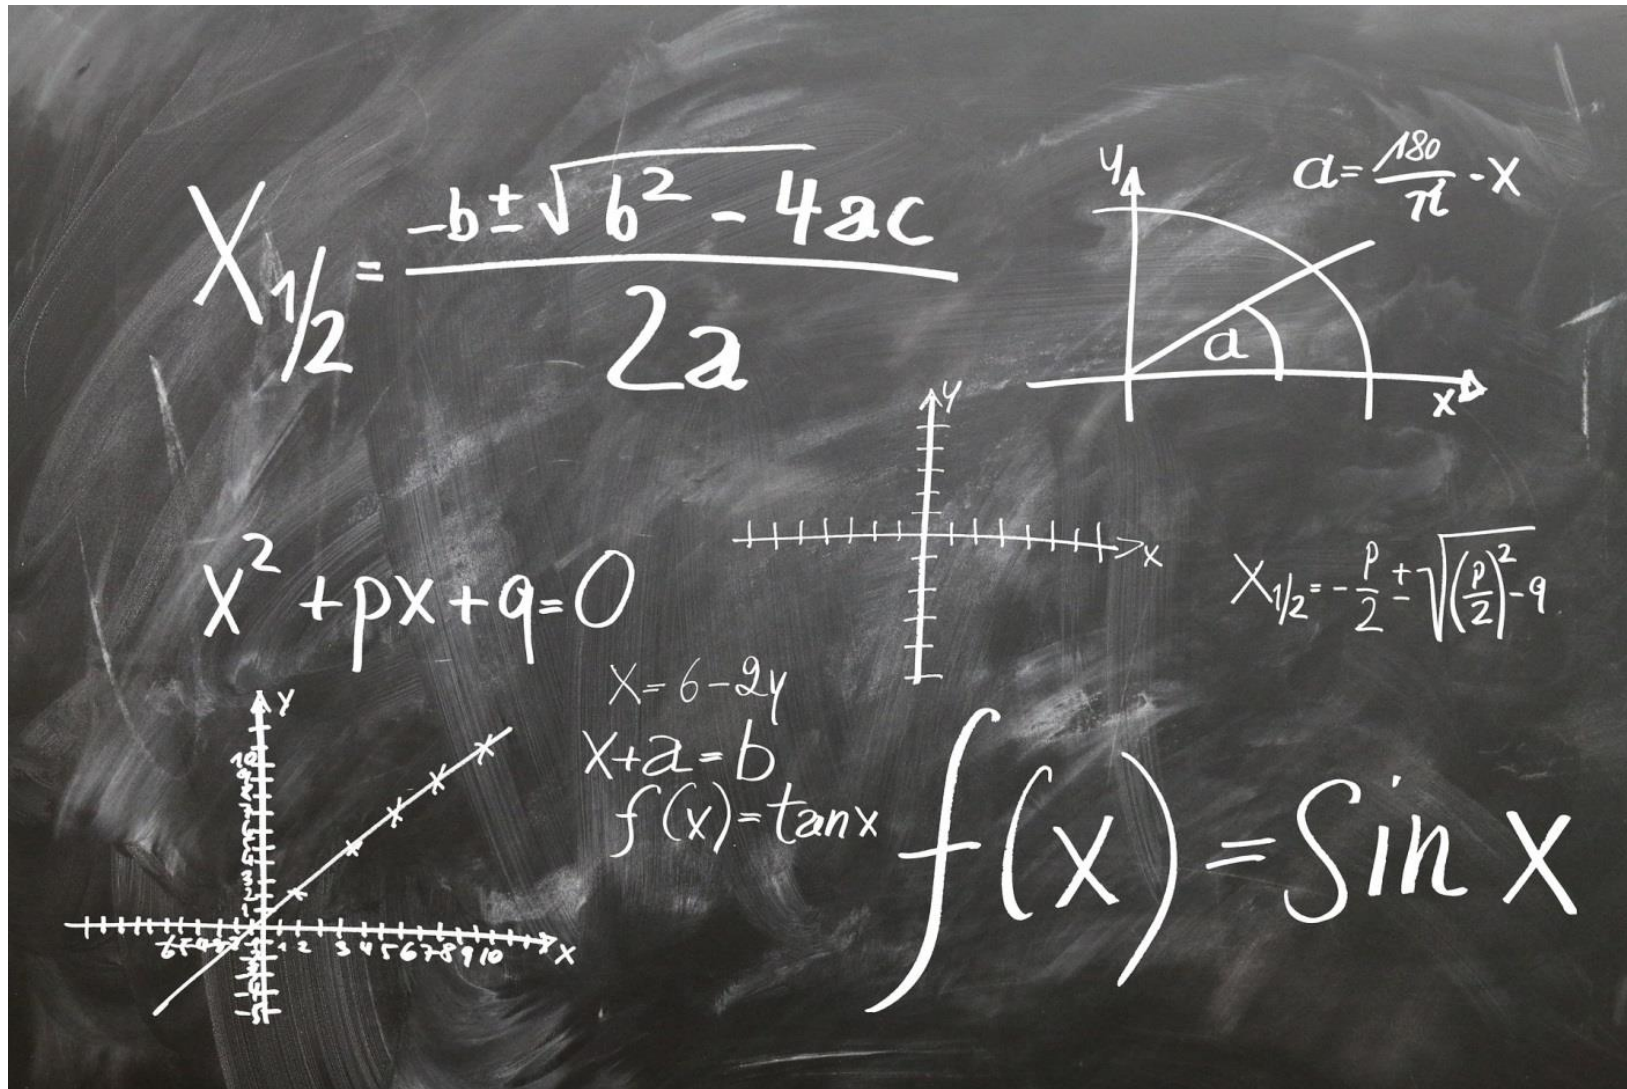 X1/2 = -b ± √b² - 4ac / 2a
y
a = 180/π - x
a
x
y
x
x² + px + q = 0
X1/2 = - p/2 ± √(p/2)² - q
x = 6 - 2y
x + a = b
f(x) = tan x
f(x) = Sin x
y
1 2 3 4 5 6 7 8 9 10
x